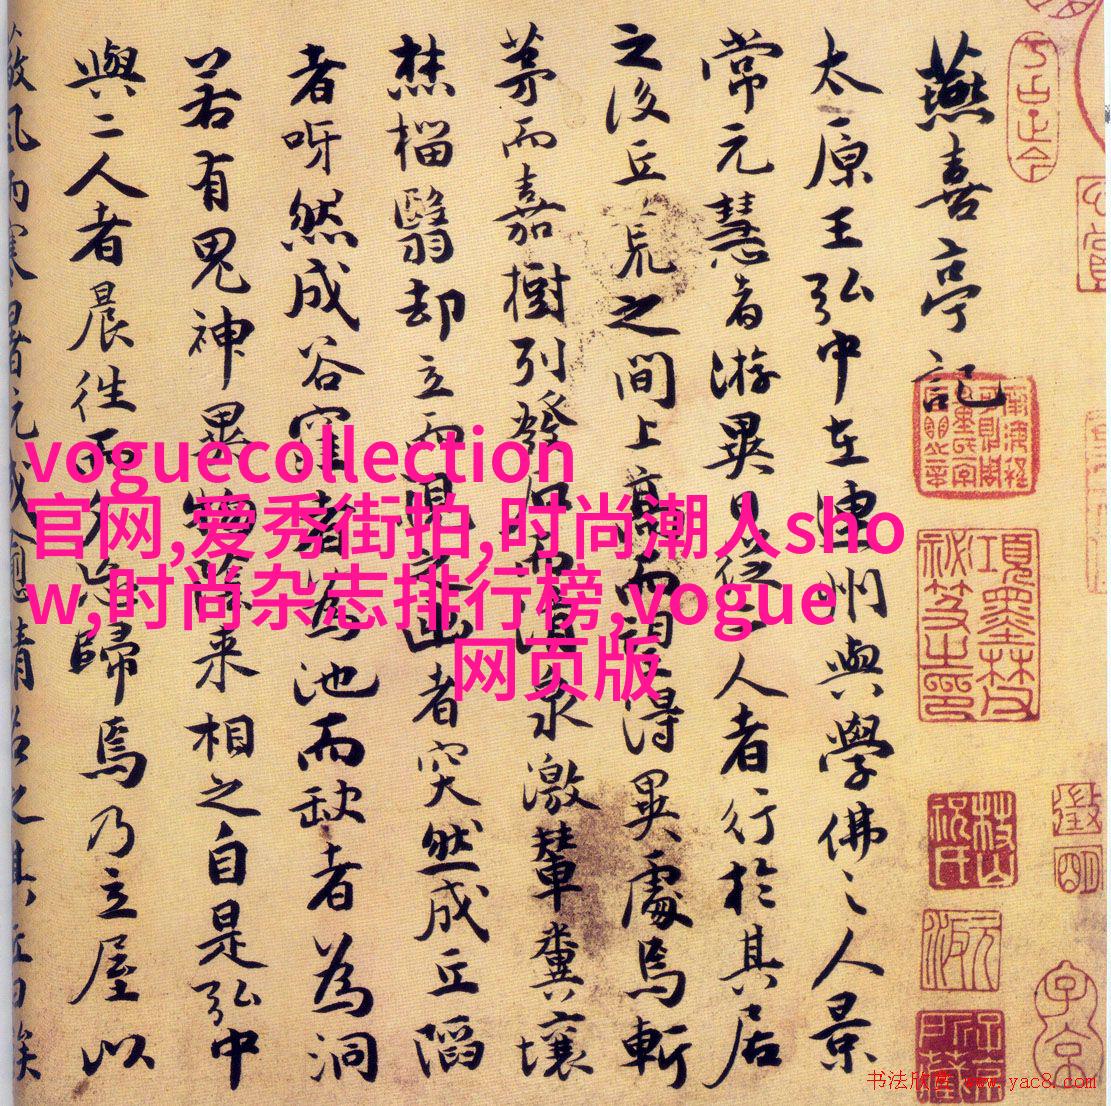 燕喜亭記
太原王弘中在連州與學佛之人景
常元慧者游異日從二人者行於其居
之後丘荒之間上高而望得異處焉斬
茅而嘉樹列發石而清泉激輦糞壤
焚椔翳却立而視之出者突然成丘陷
者呀然成谷窪者為池而缺者為洞
若有鬼神異物陰來相之自是弘中
與二人者晨往而夕忘歸焉乃立屋以
風雨寒暑者既成愈請名之其丘曰俟
voguecollection
官网,爱秀街拍,时尚潮人sho
w,时尚杂志排行榜,vogue
网页版
书法欣赏 www.yac8.com